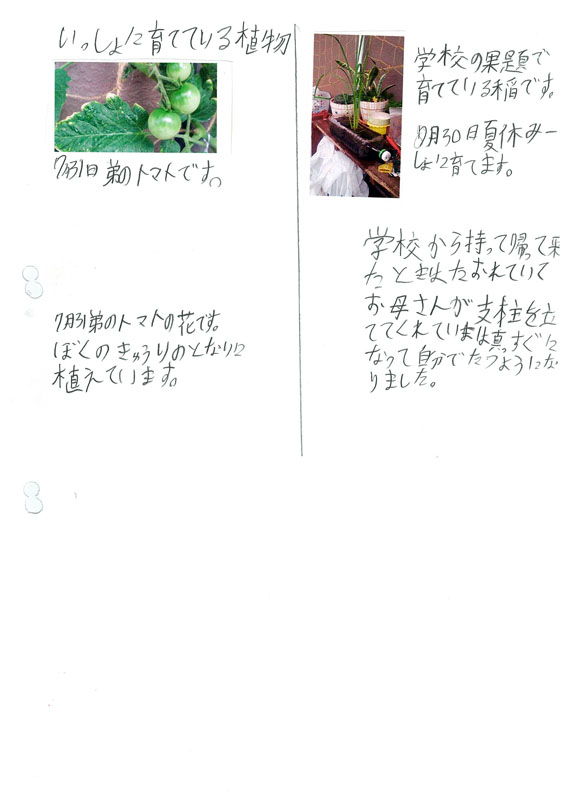 いっしょに育てている植物
7月31日弟のトマトです。
7月31弟のトマトの花です。
ぼくのきゅうりのとなりに
植えています。
学校の果題で
育てている稲です。
7月30日夏休み一
しょに育てます。
学校から持って帰って来
たときはたおれていて
お母さんが支柱を立
ててくれていまは真っすぐに
なって自分でたつようにな
りました。